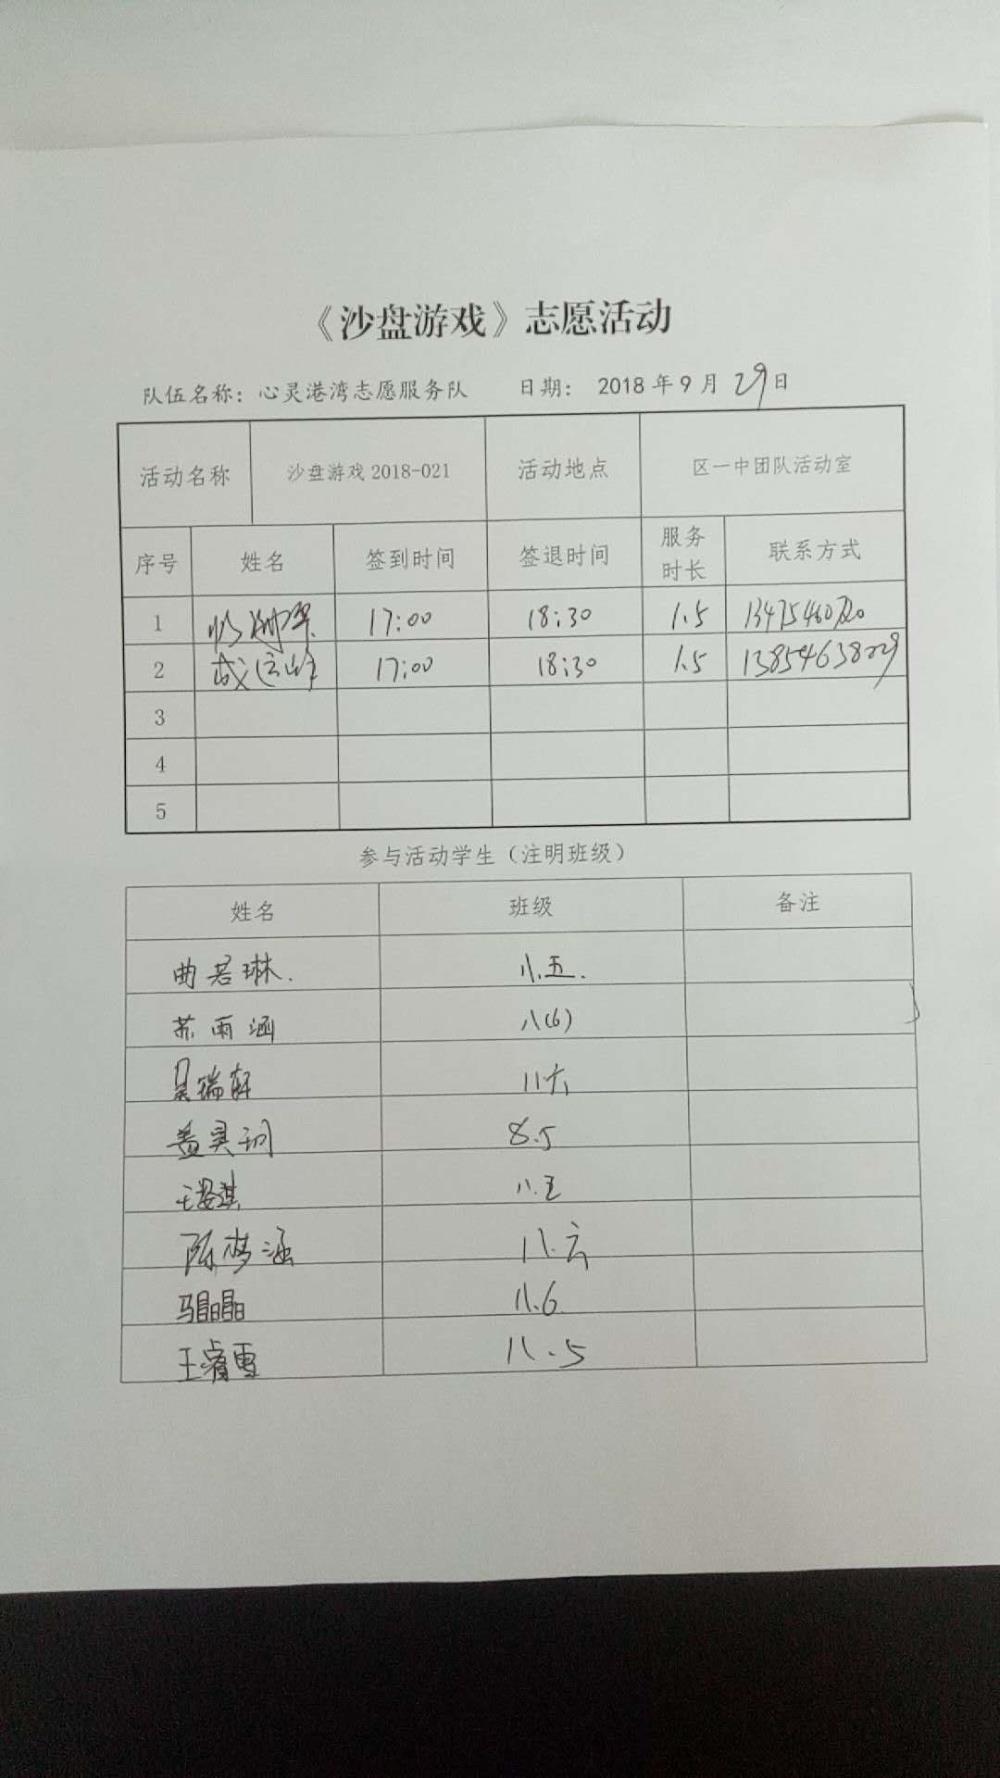 《沙盘游戏》志愿活动
队伍名称：心灵港湾志愿服务队 日期： 2018 年 9 月 29 日
活动名称 沙盘游戏 2018-021 活动地点 区一中团队活动室
序号 姓名 签到时间 签退时间 服务时长 联系方式
1 17:00 18:30 1.5
2 17:00 18:30 1.5
3
4
5
参与活动学生（注明班级）
姓名 班级 备注
曲若琳. 八.五.
苏雨涵 八(6)
吴瑞轩 八六
8.5
八.五
陈梦涵 八.六
马晶晶 八.6
王睿雪 八.5